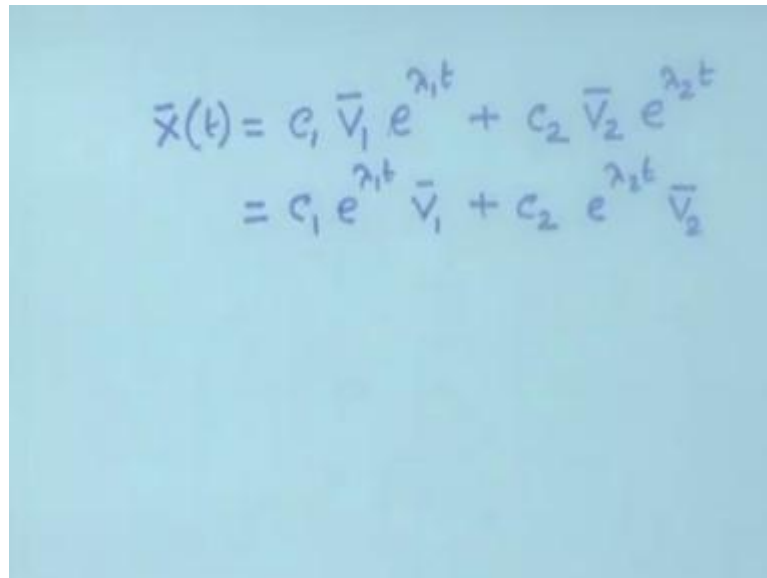 x̄(t) = c₁ v̄₁ e^{λ₁t} + c₂ v̄₂ e^{λ₂t}
= c₁ e^{λ₁t} v̄₁ + c₂ e^{λ₂t} v̄₂